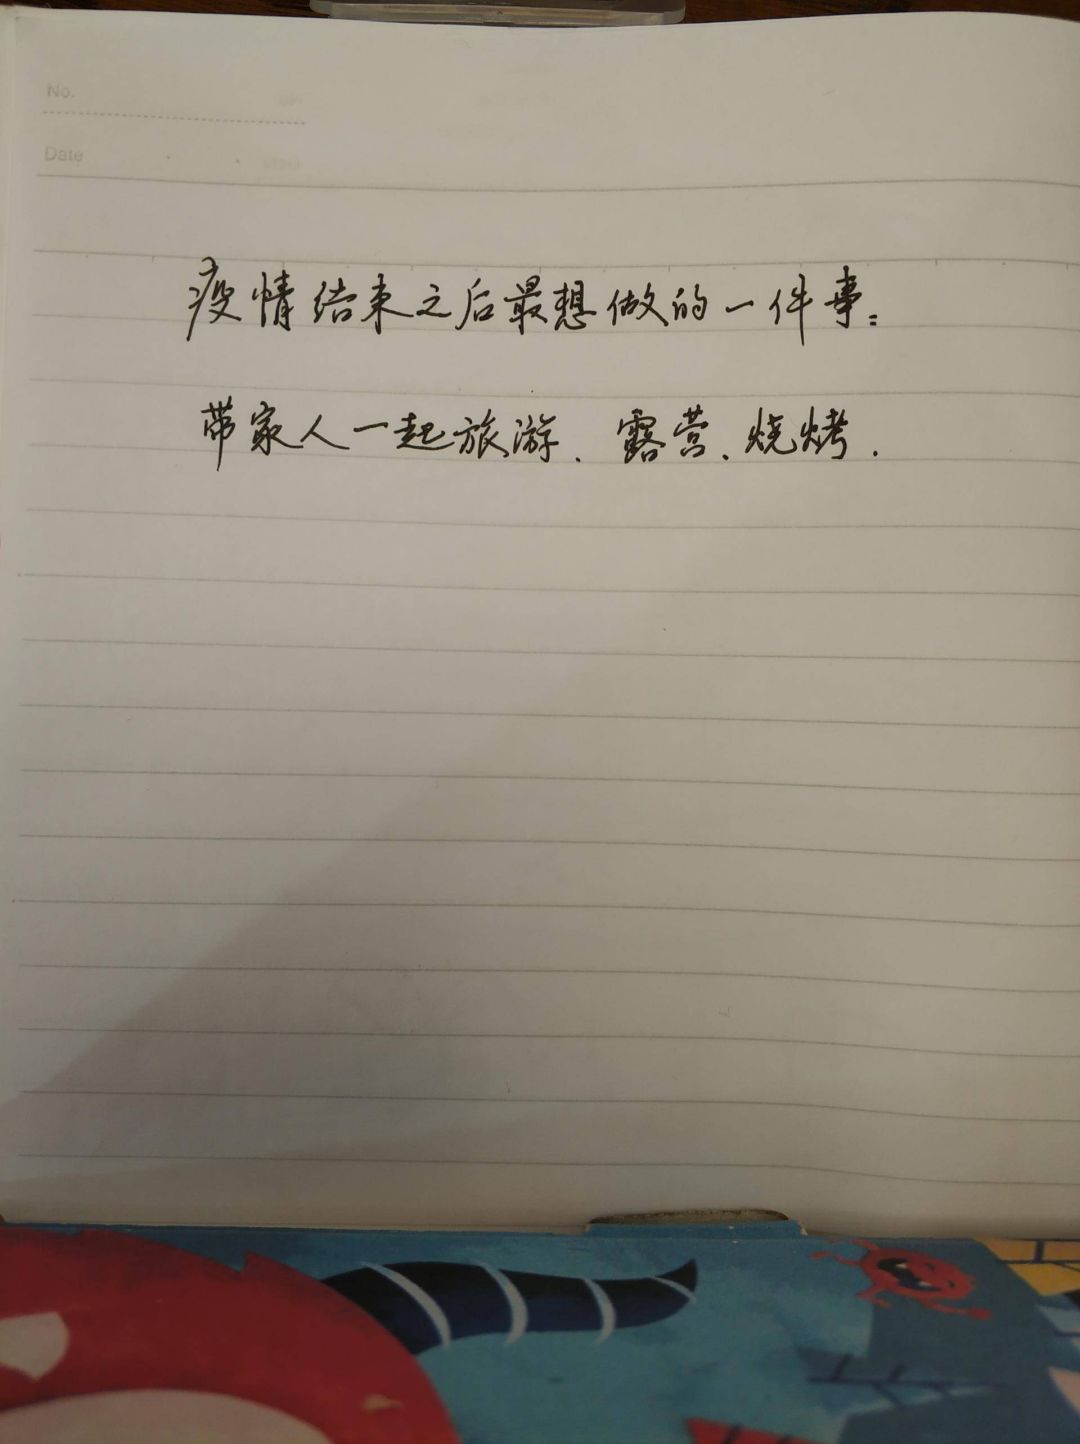 No.
Date
疫情结束之后最想做的一件事:
带家人一起旅游.露营、烧烤.